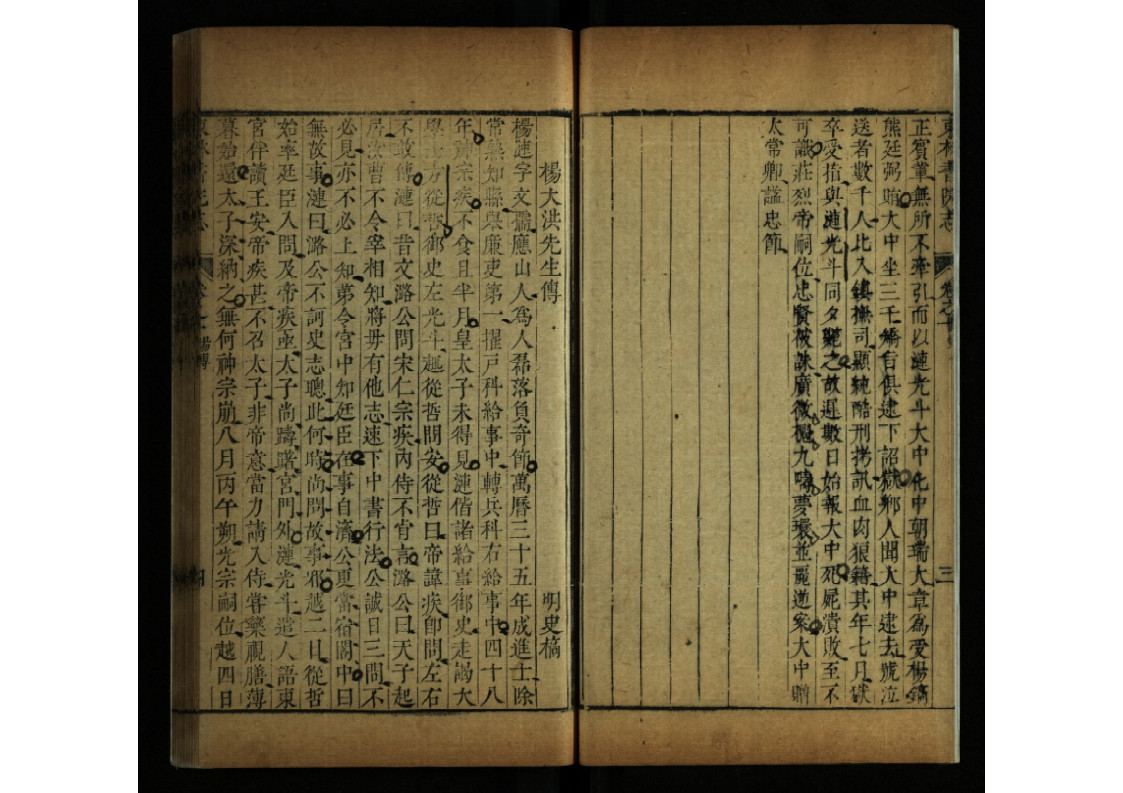 東林書院志
三
正賓輩無所不牽引而以漣光斗大中化中朝瑞大章為受楊鎬
熊廷弼賄大中坐三千矯旨俱逮下詔獄鄉人聞大中逮去號泣
送者數千人比入鎮撫司顯純酷刑拷訊血肉狼籍其年七月獄
卒受指與漣光斗同夕斃之故遲數日始報大中死屍潰敗至不
可識莊烈帝嗣位忠賢被誅廣微
九疇夢環並麗逆案大中贈
太常卿諡忠節
楊大洪先生傳
明史稿
楊漣字文孺應山人為人磊落負奇節萬曆三十五年成進士除
常熟知縣舉廉吏第一擢戶科給事中轉兵科右給事中四十八
年神宗疾不食且半月皇太子未得見漣偕諸給事御史走謁大
學士方從哲御史左光斗趣從哲問安從哲曰帝諱疾即問左右
不敢傳漣曰昔文潞公問宋仁宗疾內侍不肯言潞公曰天子起
居汝曹不令宰相知將毋有他志速下中書行法公誠日三問不
必見亦不必上知第令宮中知廷臣在事自濟公更當宿閣中曰
無故事漣曰潞公不訶史志聰此何時尚問故事邪越二日從哲
始率廷臣入問及帝疾亟太子尚躊躇宮門外漣光斗遣人語東
宮伴讀王安帝疾甚不召太子非帝意當力請入侍嘗藥視膳薄
暮始還太子深納之無何神宗崩八月丙午朔光宗嗣位越四日